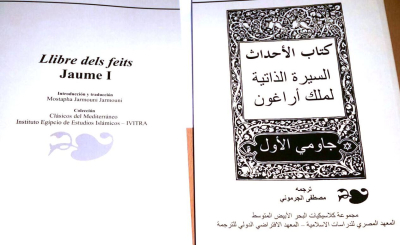 Llibre dels feits
Jaume I
Introducción y traducción
Mostapha Jarmouni Jarmouni
Colección
Clásicos del Mediterráneo
Instituto Egipcio de Estudios Islámicos – IVITRA
كتاب الأحداث
السيرة الذاتية
لملك أراغون
جاومي الأول
ترجمه
مصطفى الجرموني
مجموعة كلاسيكيات البحر الأبيض المتوسط
المعهد المصري للدراسات الاسلامية – المعهد الافتراضي الدولي للترجمة